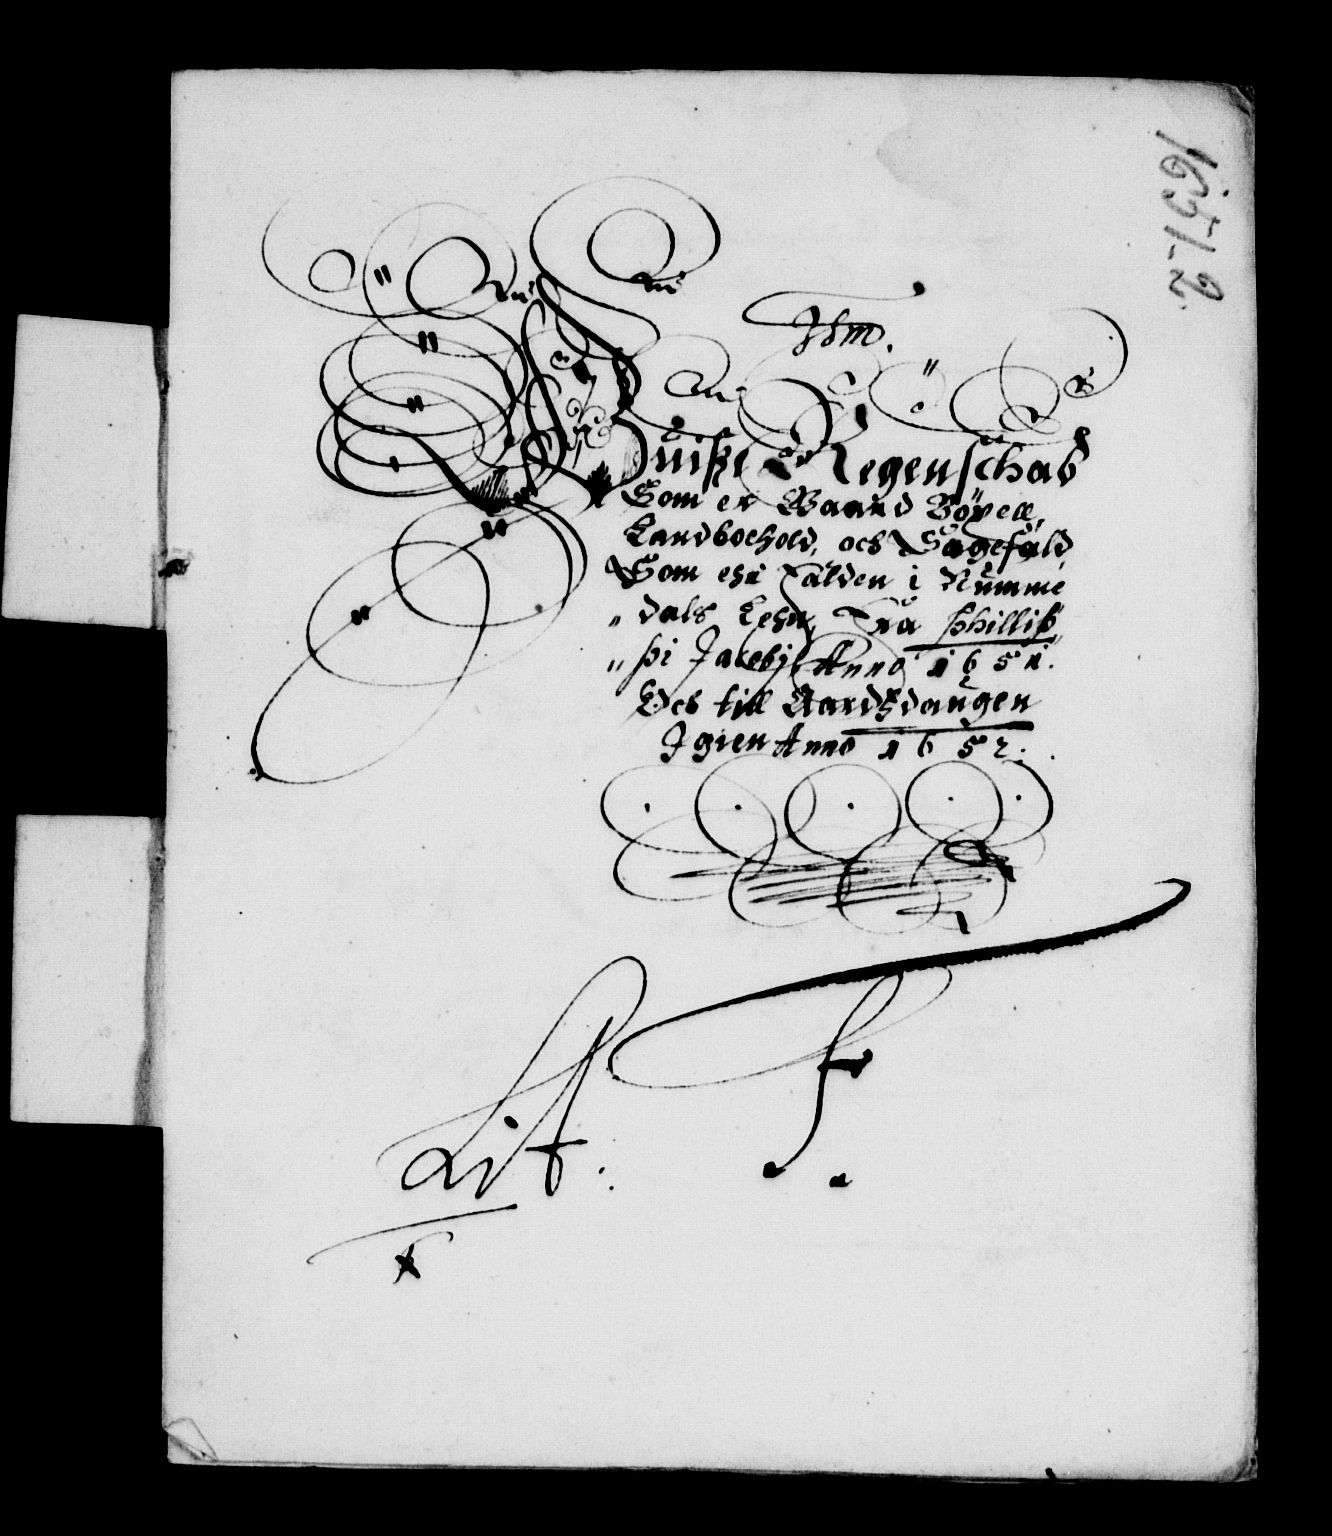 1651-2.
Ihm.
Wiße Regenschab
Som er Waard Böxell,
Landboehold, och Sagefald
Som ehr falden i Numme
„ dals Lehn, Fra Phillip
„ pi Jacobj Anno 1651.
Och till Aardsdaugen
Igien Anno 1652.
Lit. F.